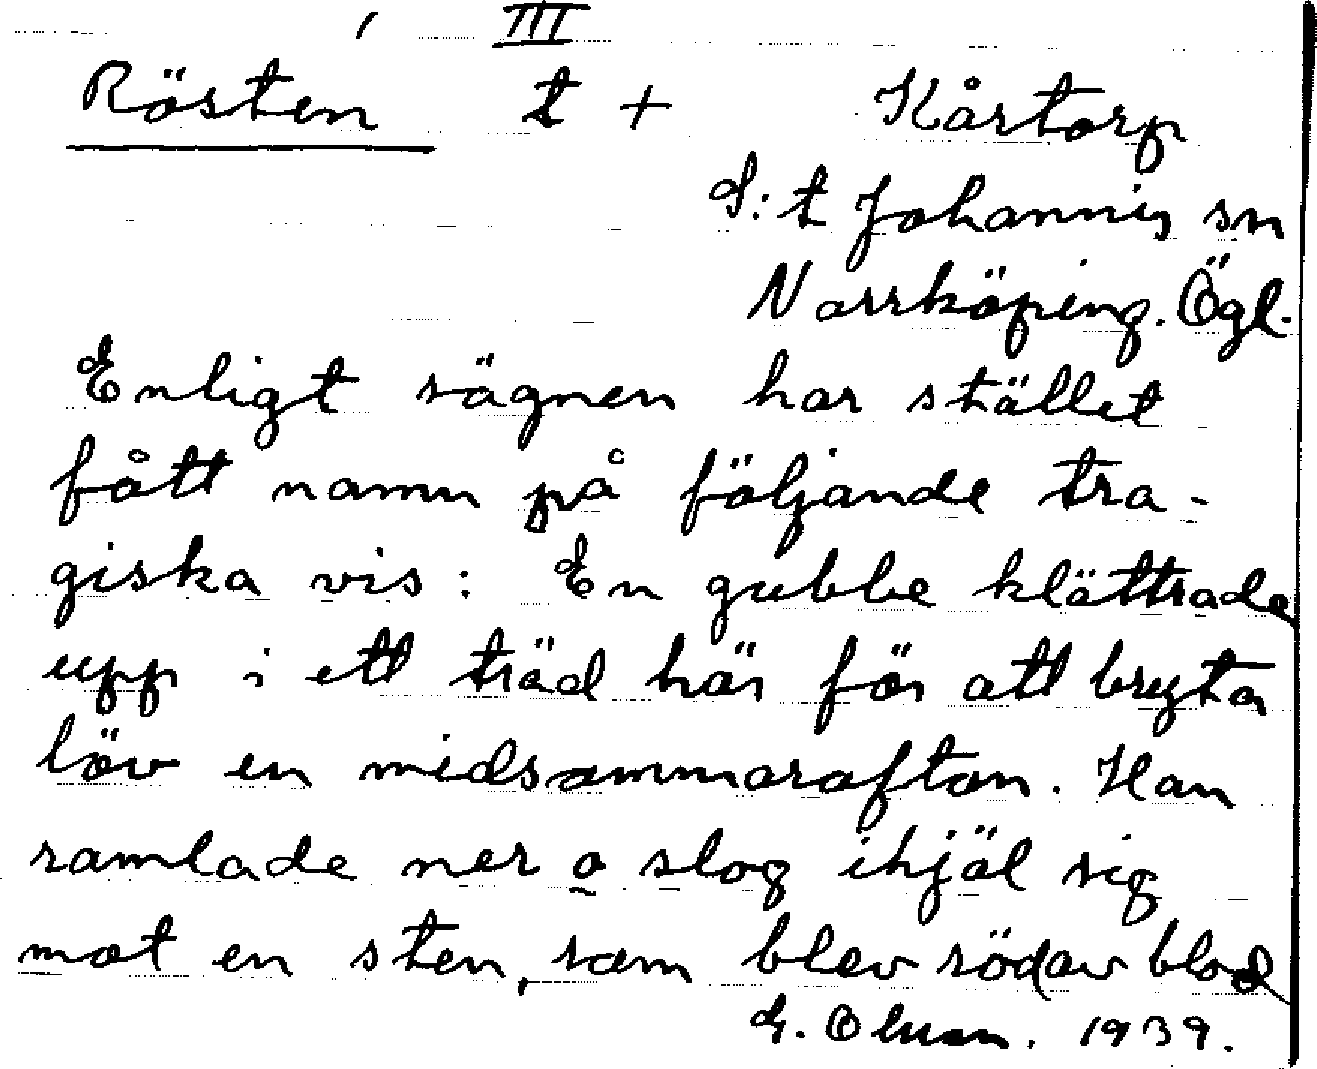 III
Rösten t + Kårtorp
S:t Johannis sn
Norrköping. Ögl.
Enligt sägnen har stället
fått namn på följande tra-
giska vis: En gubbe klättrade
upp i ett träd här för att bryta
löv en midsommarafton. Han
ramlade ner o slog ihjäl sig
mot en sten, som blev röd av blod
G. Olsson. 1939.